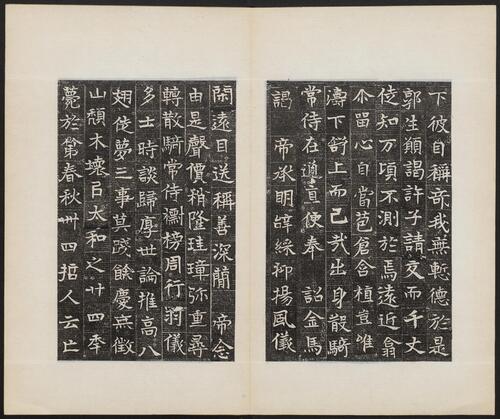 下彼自稱奇我無慙德於是
郭生傾謁許子請交而千丈
徒知万頃不測於焉遠近翕
尒留心自當苞倉含植豈唯
濤下舒上而已哉出身散騎
常侍在遒宣便奉 詔金馬
謁 帝承明辝綵抑揚風儀
閑遠目送稱善深簡 帝念
由是聲價稍隆珪璋弥重尋
轉散騎常侍榜周行羽儀
多士時談歸厚世論推高八
翅徒夢三事莫踐餘慶無徵
山頹木壞㠯太和之廿四年
薨於第春秋卅四哲人云亡